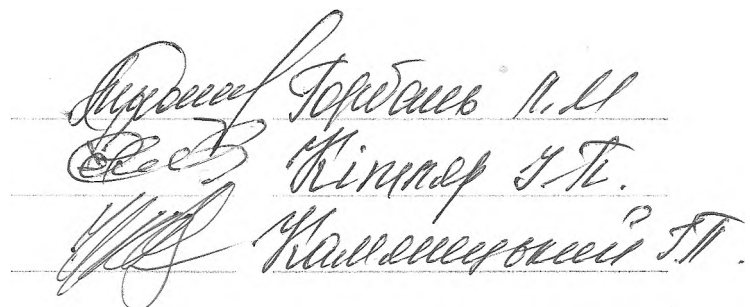 Горбань П. М
Кітляр І. П.
Камянецький Г. П.